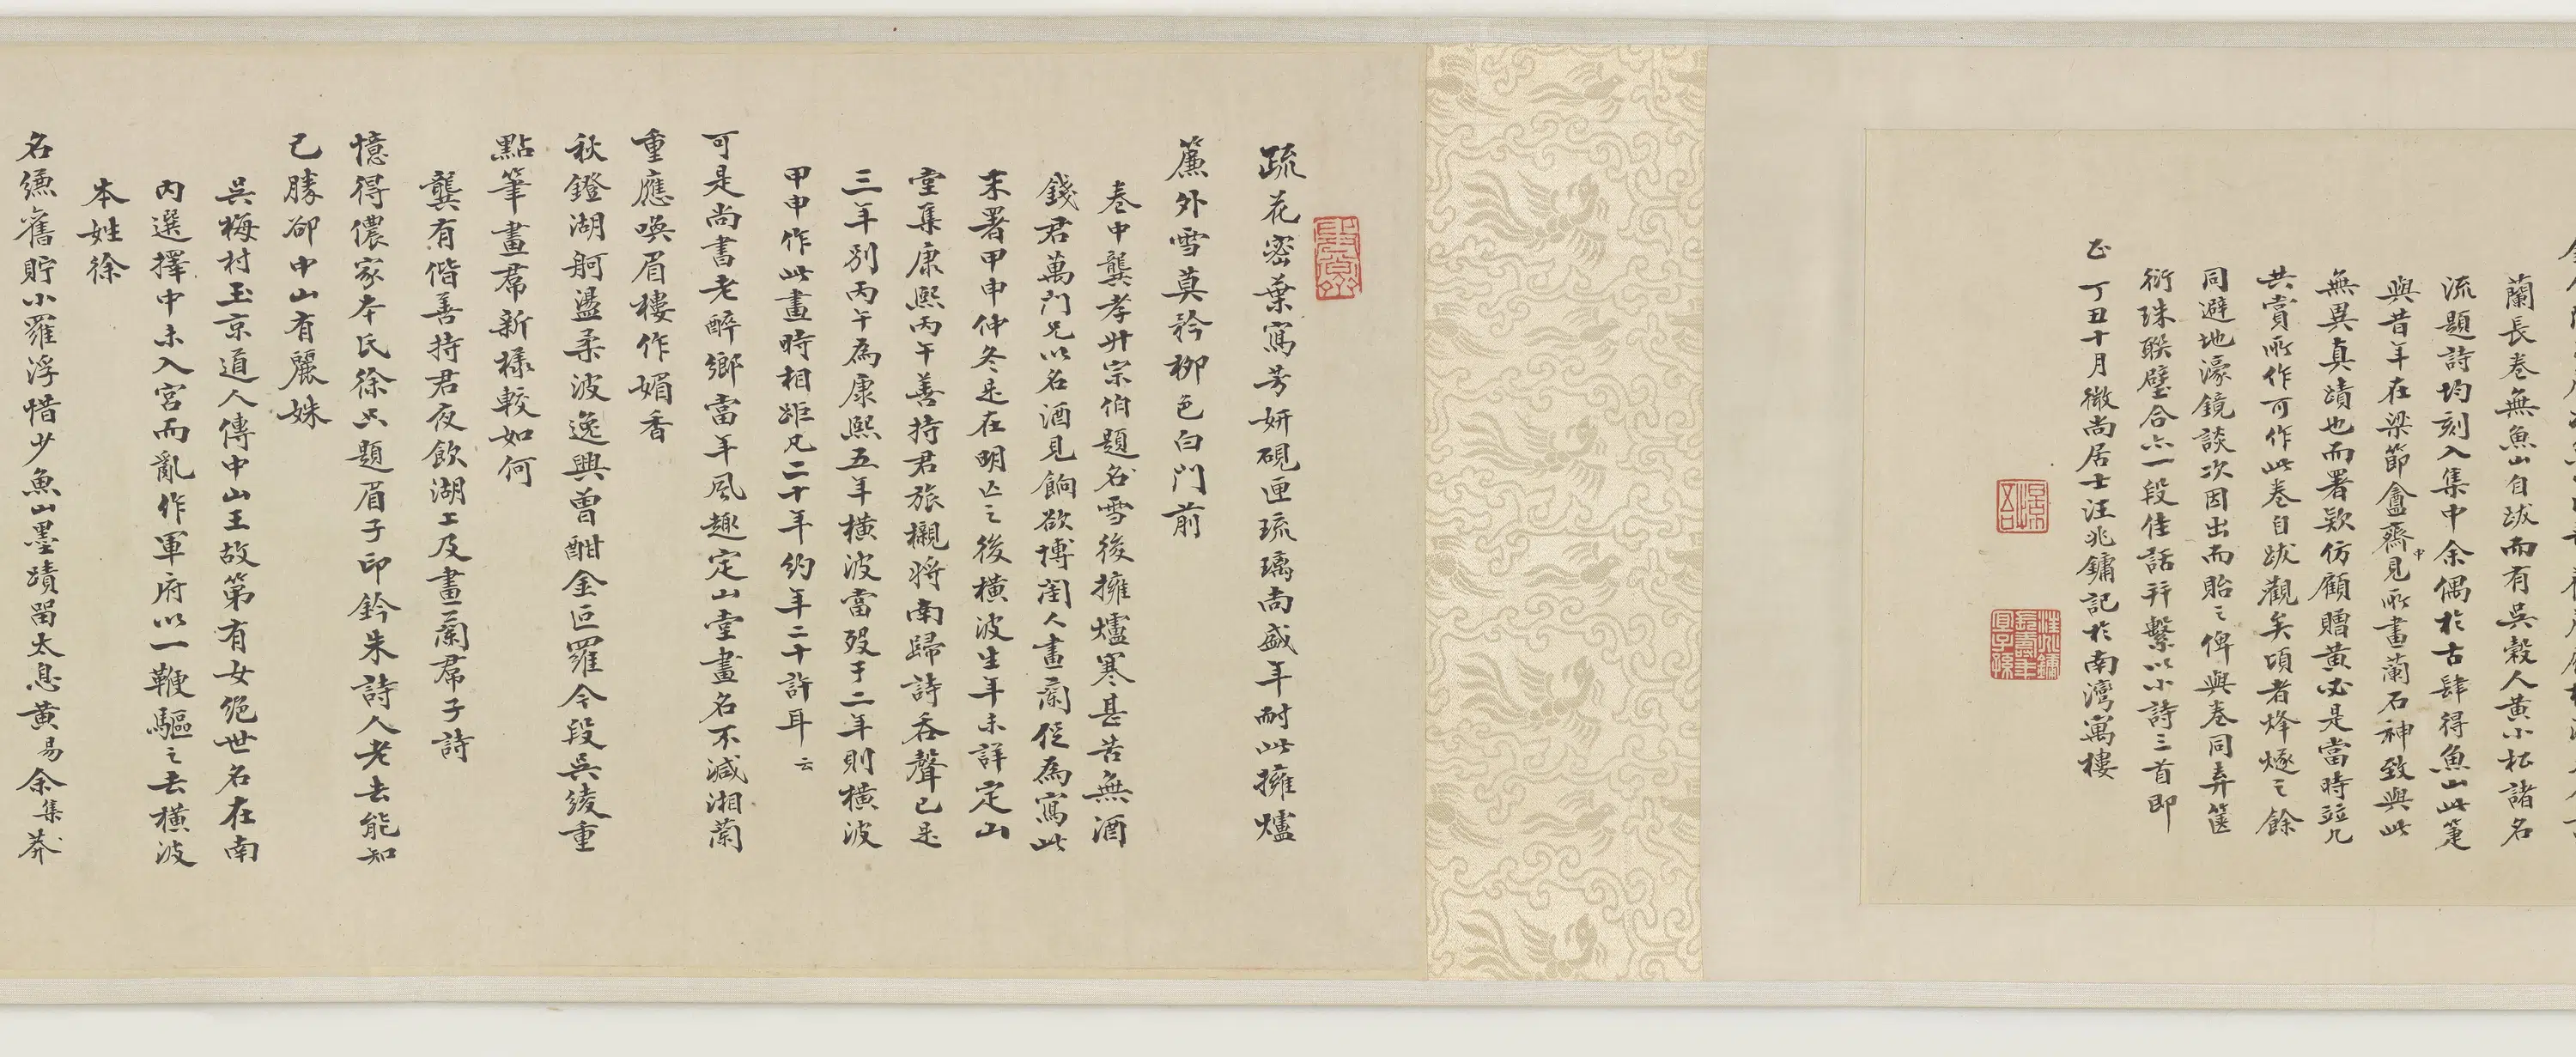 蘭長卷無魚山自跋而有吳穀人黃小松諸名
流題詩均刻入集中余偶於古肆得魚山此筆
與昔年在梁節盦齋中見所畫蘭石神致與此
無異真蹟也而署款仿顧贈黃必是當時並几
共賞所作可作此卷自跋觀矣頃者烽燧之餘
同避地濠鏡談次因出而貽之俾與卷同弆篋
衍珠聯璧合亦一段佳話并繫以小詩三首即
正 丁丑十月微尚居士汪兆鏞記於南灣寓樓
疏花密葉寫芳妍硯匣琉璃尚盛年耐此擁爐
簾外雪莫矜柳色白門前
卷中龔孝升宗伯題名雪後擁爐寒甚苦無酒
錢君萬門兄以名酒見餉欲博閨人畫蘭從為寫此
末署甲申仲冬是在明亡之後橫波生年未詳定山
堂集康熙丙午善持君旅櫬將南歸詩吞聲已是
三年別丙午為康熙五年橫波當歿于二年則橫波
甲申作此畫時相距凡二十年約年二十許耳云
可是尚書老醉鄉當年風趣定山堂畫名不減湘蘭
重應喚眉樓作媚香
秋鐙湖舸盪柔波逸興曾酣金叵羅今段吳綾重
點筆畫帬新樣較如何
龔有偕善持君夜飲湖上及畫蘭帬子詩
憶得儂家本氏徐只題眉子印鈐朱詩人老去能知
己勝卻中山有麗姝
吳梅村玉京道人傳中山王故第有女絕世名在南
內選擇中未入宮而亂作軍府以一鞭驅之去橫波
本姓徐
名縑舊貯小羅浮惜少魚山墨蹟留太息黃易余集莽